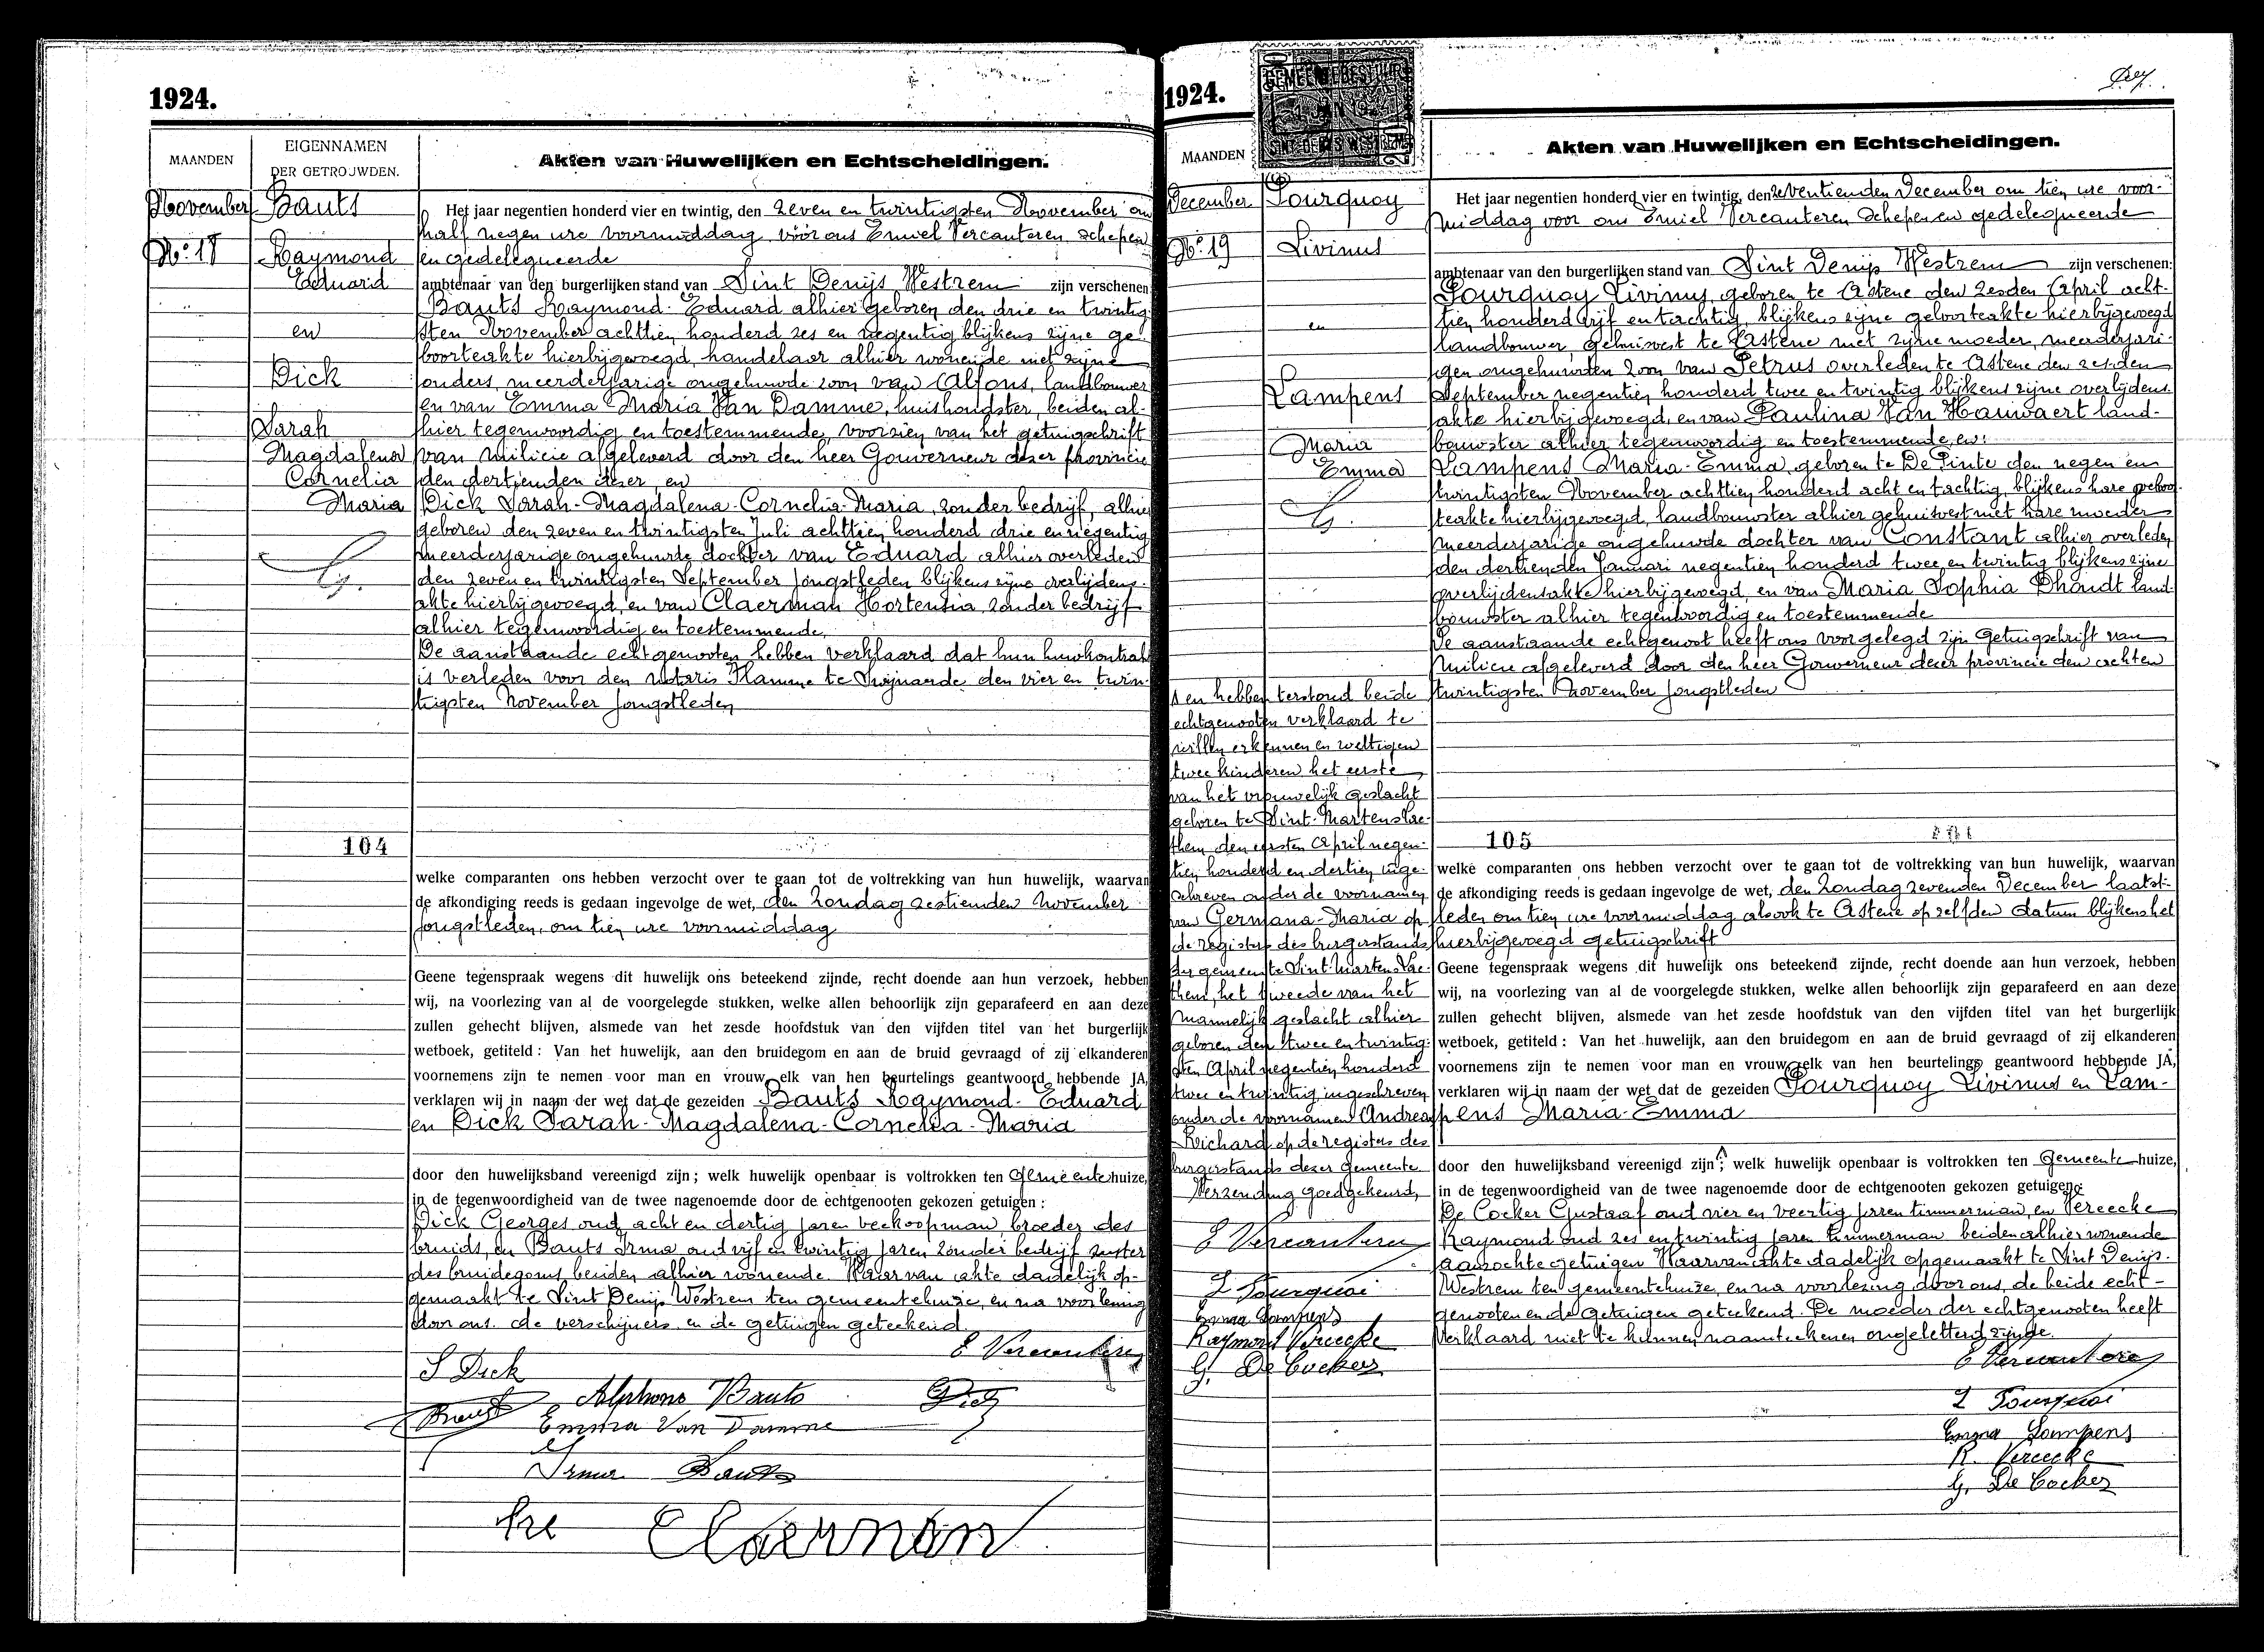 1924.
MAANDEN
EIGENNAMEN
DER GETROUWDEN.
Akten van Huwelijken en Echtscheidingen.
November
No. 18
Bauts
Raymond
Eduard
en
Dick
Sarah
Magdalena
Cornelia
Maria
Het jaar negentien honderd vier en twintig, den zeven en twintigsten November om
half negen ure voormiddag vóór ons Emiel Vercauteren schepen
en gedelegueerde
ambtenaar van den burgerlijken stand van Sint Denijs Westrem zijn verschenen
Bauts Raymond-Eduard alhier geboren den drie en twintig
sten November achttien honderd zes en negentig blijkens zijne ge-
boorteakte hierbijgevoegd, handelaar alhier wonende met zijne
ouders, meerderjarige ongehuwde zoon van Alfons, landbouwer
en van Emma Maria Van Damme, huishoudster, beiden al-
hier tegenwoordig en toestemmende, voorzien van het getuigschrift
van milicie afgeleverd door den heer Gouverneur dezer provincie
den dertienden dezer, en
Dick Sarah-Magdalena-Cornelia-Maria, zonder bedrijf, alhier
geboren den zeven en twintigsten Juli achttien honderd drie en negentig
meerderjarige ongehuwde dochter van Eduard alhier overleden
den zeven en twintigsten September jongstleden blijkens zijne overlijdens-
akte hierbijgevoegd, en van Claerman Hortensia, zonder bedrijf
alhier tegenwoordig en toestemmende.
De aanstaande echtgenooten hebben verklaard dat hun huwkontrakt
is verleden voor den notaris Hamme te Zwijnaarde den vier en twin-
tigsten November jongstleden
104
welke comparanten ons hebben verzocht over te gaan tot de voltrekking van hun huwelijk, waarvan
de afkondiging reeds is gedaan ingevolge de wet, den Zondag zestienden November
jongstleden, om tien ure voormiddag
Geene tegenspraak wegens dit huwelijk ons beteekend zijnde, recht doende aan hun verzoek, hebben
wij, na voorlezing van al de voorgelegde stukken, welke allen behoorlijk zijn geparafeerd en aan deze
zullen gehecht blijven, alsmede van het zesde hoofdstuk van den vijfden titel van het burgerlijk
wetboek, getiteld: Van het huwelijk, aan den bruidegom en aan de bruid gevraagd of zij elkanderen
voornemens zijn te nemen voor man en vrouw, elk van hen beurtelings geantwoord hebbende JA,
verklaren wij in naam der wet dat de gezeiden Bauts Raymond-Eduard
en Dick Sarah-Magdalena-Cornelia-Maria
door den huwelijksband vereenigd zijn; welk huwelijk openbaar is voltrokken ten Gemeentehuize,
in de tegenwoordigheid van de twee nagenoemde door de echtgenooten gekozen getuigen:
Dick Georges oud acht en dertig jaren veekoopman, broeder des
bruids, en Bauts Irma oud vijf en twintig jaren zonder bedrijf zuster
des bruidegoms beiden alhier wonende. Waarvan akte dadelijk op-
gemaakt te Sint Denijs Westrem ten gemeentehuize, en na voorlezing
door ons. de verschijners en de getuigen geteekend.
E Vercauteren
S Dick
Alphons Bauts
Emma Van Damme
Irma Bauts
Claerman
1924.
MAANDEN
GEMEENTEBESTUUR
Akten van Huwelijken en Echtscheidingen.
December
No. 19
Pourquoy
Livinus
en
Lampens
Maria
Emma
Het jaar negentien honderd vier en twintig, den zeventienden December om tien ure voor-
middag voor ons Emiel Vercauteren schepen en gedelegueerde
ambtenaar van den burgerlijken stand van Sint Denijs Westrem zijn verschenen:
Pourquoy Livinus, geboren te Astene den zesden April acht-
tien honderd vijf en tachtig, blijkens zijne geboorteakte hierbijgevoegd
landbouwer, gehuisvest te Astene met zijne moeder, meerderjari-
gen ongehuwden zoon van Petrus overleden te Astene den zesden
September negentien honderd twee en twintig blijkens zijne overlijdens-
akte hierbijgevoegd, en van Paulina Van Hauwaert land-
bouwster alhier tegenwoordig en toestemmende, en:
Lampens Maria-Emma, geboren te De Pinte den negen en
twintigsten November achttien honderd acht en tachtig, blijkens hare geboor-
teakte hierbijgevoegd, landbouwster alhier gehuisvest met hare moeder
meerderjarige ongehuwde dochter van Constant alhier overleden
den dertienden Januari negentien honderd twee en twintig blijkens zijne
overlijdensakte hierbijgevoegd, en van Maria Sophia Dhondt land-
bouwster alhier tegenwoordig en toestemmende
De aanstaande echtgenoot heeft ons voorgelegd zijn getuigschrift van
milicie afgeleverd door den heer Gouverneur dezer provincie den achten
twintigsten November jongstleden
en hebben terstond beide
echtgenooten verklaard te
willen erkennen en wettigen
twee kinderen het eerste
van het vrouwelijk geslacht
geboren te Sint-Martens Lae-
them den eersten April negen-
tien honderd en dertien inge-
schreven onder de voornamen
van Germana-Maria op
de registers des burgerstands
der gemeente Sint-Martens Lae-
them, het tweede van het
mannelijk geslacht alhier
geboren den twee en twintig-
sten April negentien honderd
twee en twintig ingeschreven
onder de voornamen Andreas
Richard op de registers des
burgerstands dezer Gemeente
Verzending goedgekeurd,
E Vercauteren
L Pourquoi
Emma Lampens
Raymond Vereecke
G. De Cocker
105
welke comparanten ons hebben verzocht over te gaan tot de voltrekking van hun huwelijk, waarvan
de afkondiging reeds is gedaan ingevolge de wet, den Zondag zevenden December laatst-
leden om tien ure voormiddag alsook te Astene op zelfden datum blijkens het
hierbijgevoegd getuigschrift
Geene tegenspraak wegens dit huwelijk ons beteekend zijnde, recht doende aan hun verzoek, hebben
wij, na voorlezing van al de voorgelegde stukken, welke allen behoorlijk zijn geparafeerd en aan deze
zullen gehecht blijven, alsmede van het zesde hoofdstuk van den vijfden titel van het burgerlijk
wetboek, getiteld: Van het huwelijk, aan den bruidegom en aan de bruid gevraagd of zij elkanderen
voornemens zijn te nemen voor man en vrouw, elk van hen beurtelings geantwoord hebbende JA,
verklaren wij in naam der wet dat de gezeiden Pourquoy Livinus en Lam-
pens Maria-Emma
door den huwelijksband vereenigd zijn; welk huwelijk openbaar is voltrokken ten Gemeentehuize,
in de tegenwoordigheid van de twee nagenoemde door de echtgenooten gekozen getuigen:
De Cocker Gustaaf oud vier en veertig jaren timmerman, en Vereecke
Raymond oud zes en twintig jaren timmerman beiden alhier wonende
aanzochte getuigen Waarvan akte dadelijk opgemaakt te Sint Denijs-
Westrem ten gemeentehuize, en na voorlezing door ons, de beide echt-
genooten en de getuigen geteekend. De moeder der echtgenooten heeft
verklaard niet te kunnen naamteekenen ongeletterd zijnde.
E Vercauteren
L Pourquoi
Emma Lampens
R. Vereecke
G. De Cocker